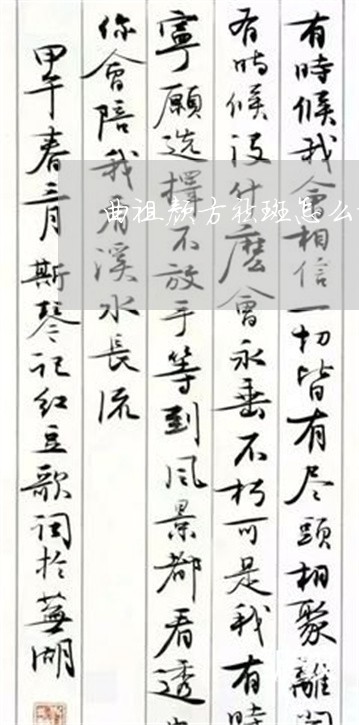 有時候我會相信一切皆有尽頭相聚離
有時候没什麽會永垂不朽可是我有時
寧願选擇不放手等到风景都看透
你會陪我看溪水長流
甲午春三月斯琴记红豆歌词於蕪湖
曲祖颜方祛斑怎么